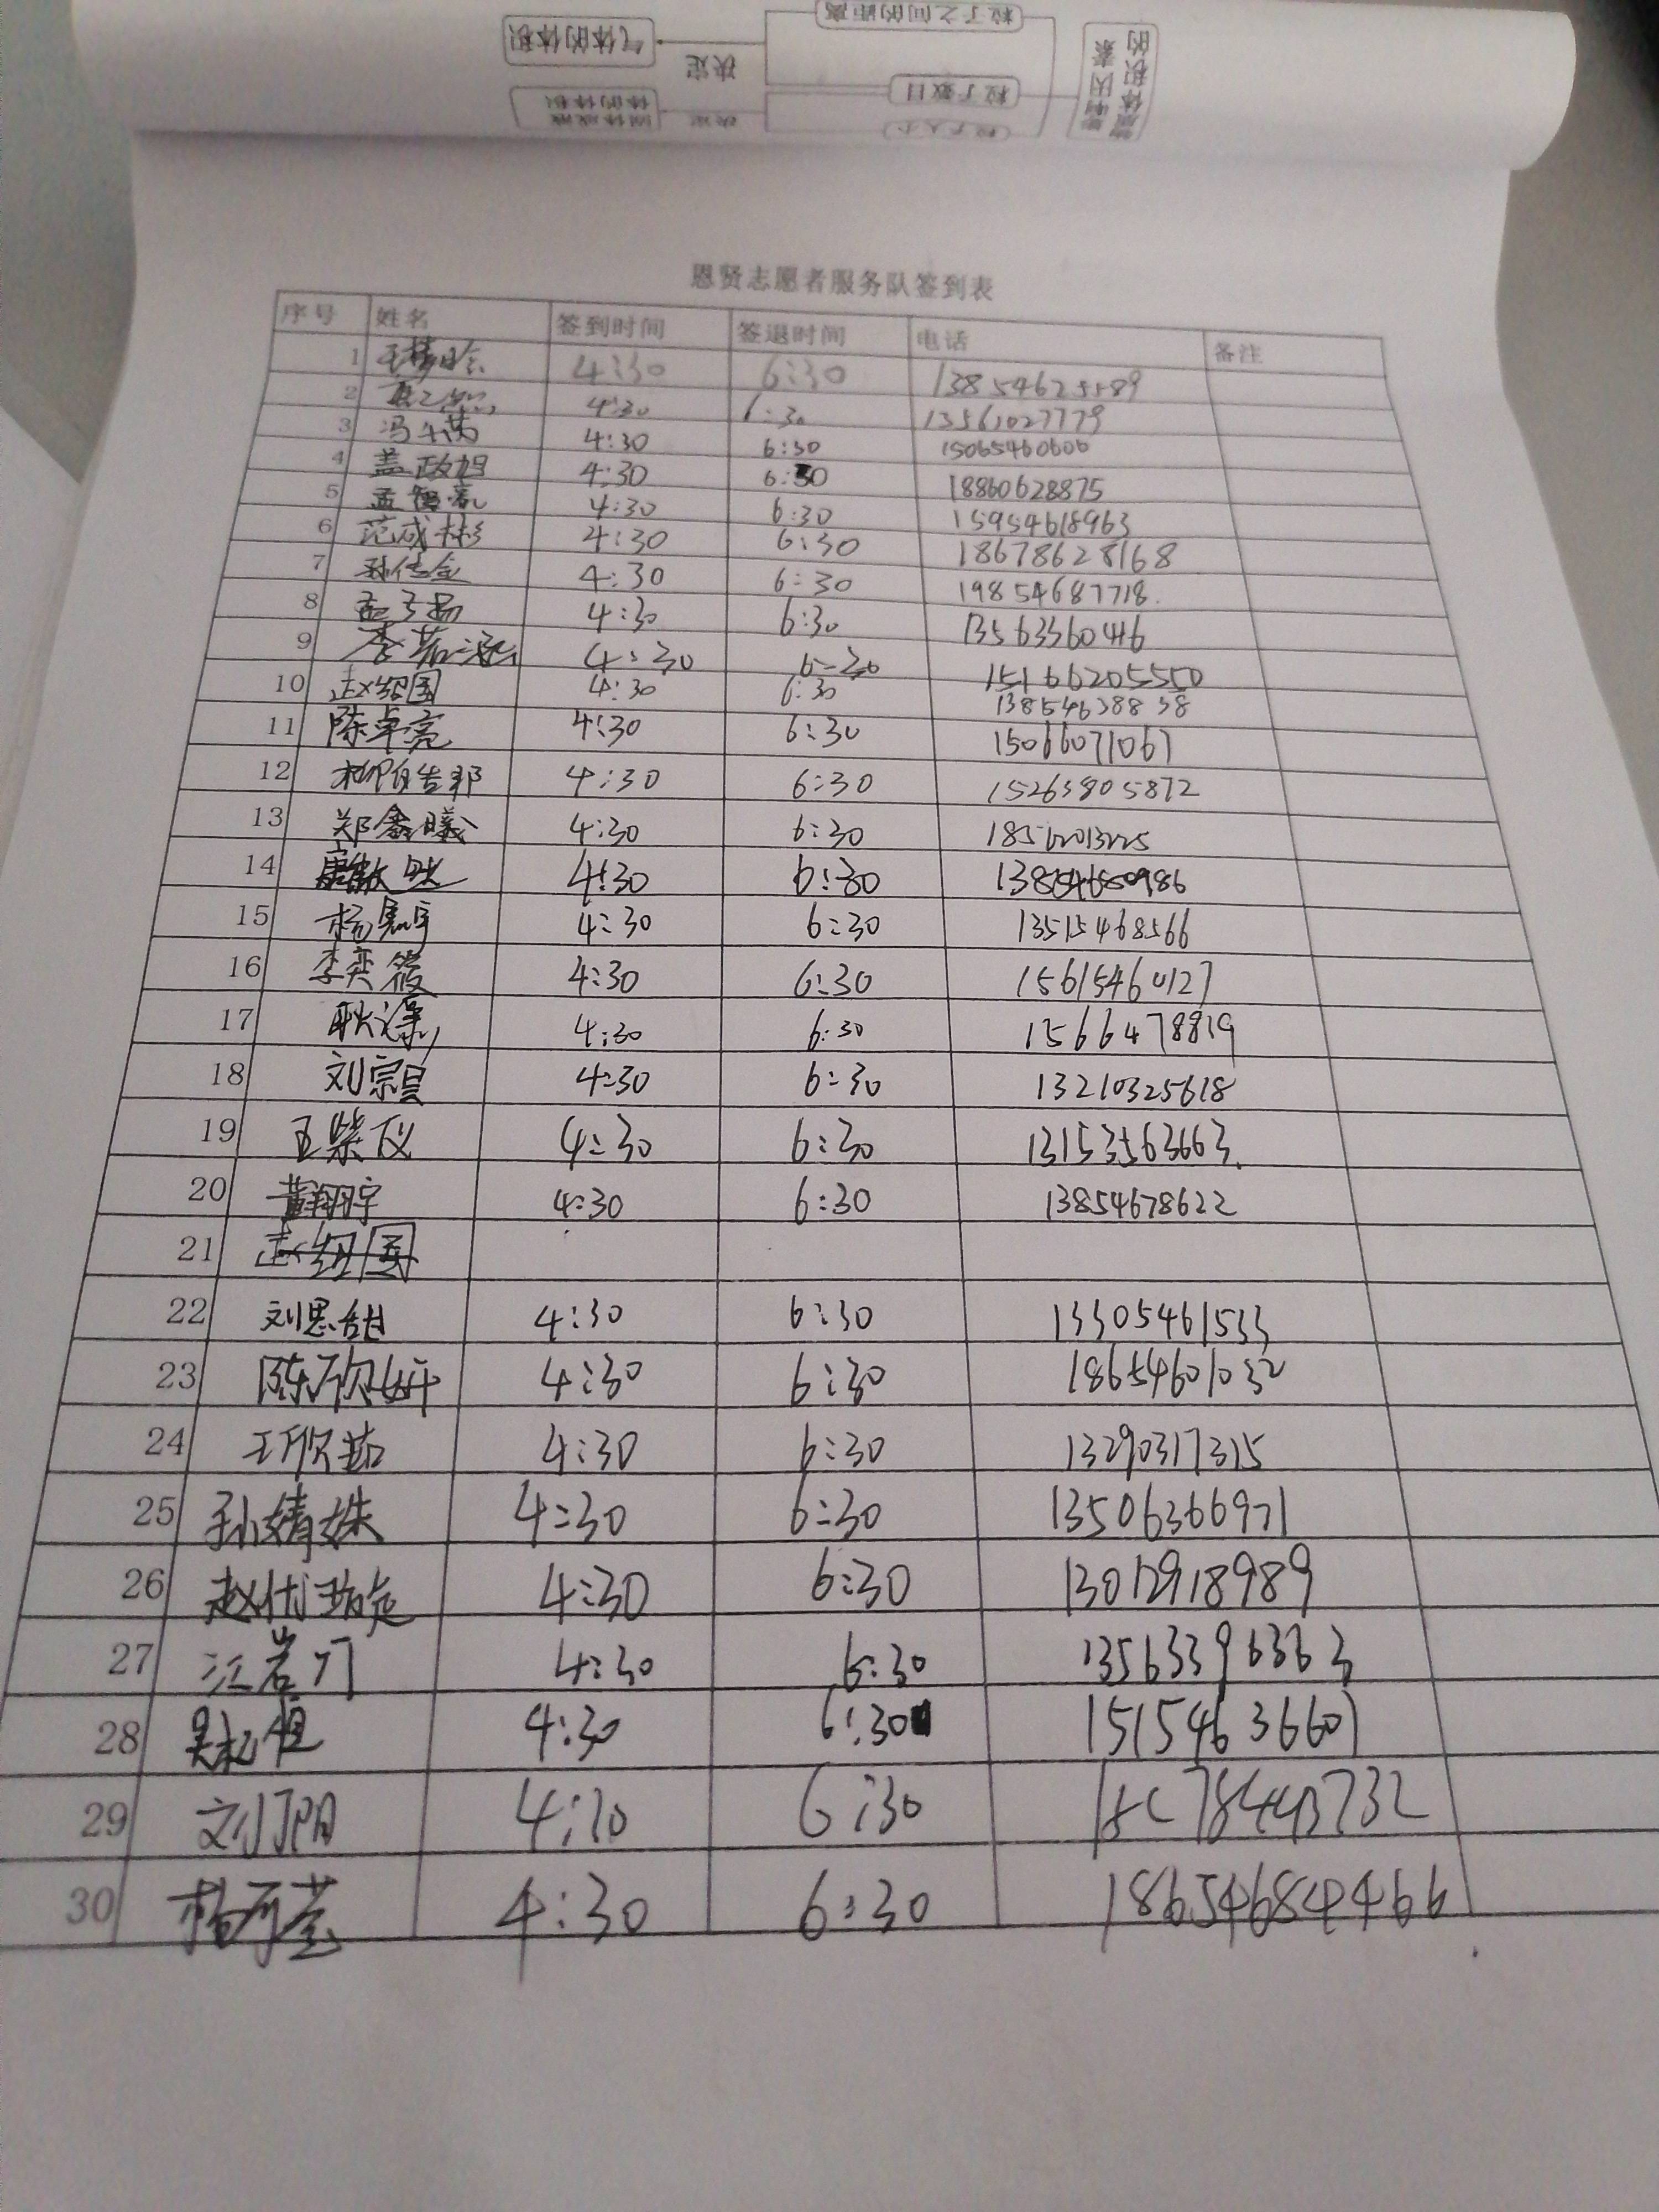 粒子之间的距离
气体的体积
决定
粒子数目
物质体积的
影响因素
固体或液
体的体积
决定
粒子大小
恩贤志愿者服务队签到表
序号 姓名 签到时间 签退时间 电话 备注
1 4:30 6:30 13854625589
2 4:30 6:30 13561027779
3 4:30 6:30 15065460606
4 盖政旭 4:30 6:30 18860628875
5 孟智豪 4:30 6:30 15954618963
6 范成彬 4:30 6:30 18678628168
7 孙传金 4:30 6:30 19854687718
8 孟子扬 4:30 6:30 13563360416
9 李茹涵 4:30 6:30 15166205550
10 赵纽国 4:30 6:30 13854638838
11 陈卓亮 4:30 6:30 15066071067
12 4:30 6:30 15263805872
13 郑鑫曦 4:30 6:30
14 4:30 6:30
15 4:30 6:30 13515468566
16 李奕筱 4:30 6:30 15615460127
17 4:30 6:30 1566478819
18 刘宗昊 4:30 6:30 13210325618
19 王紫仪 4:30 6:30 13153563663
20 董翔宇 4:30 6:30 13854678622
21 赵纽国
22 刘思甜 4:30 6:30 13305461533
23 陈欣妍 4:30 6:30 18654601032
24 王欣茹 4:30 6:30 13290317315
25 孙婧姝 4:30 6:30 13506366971
26 4:30 6:30 13012918989
27 江岩汀 4:30 6:30 13563396363
28 4:30 6:30 15154636601
29 刘阳 4:30 6:30
30 4:30 6:30 18654684466